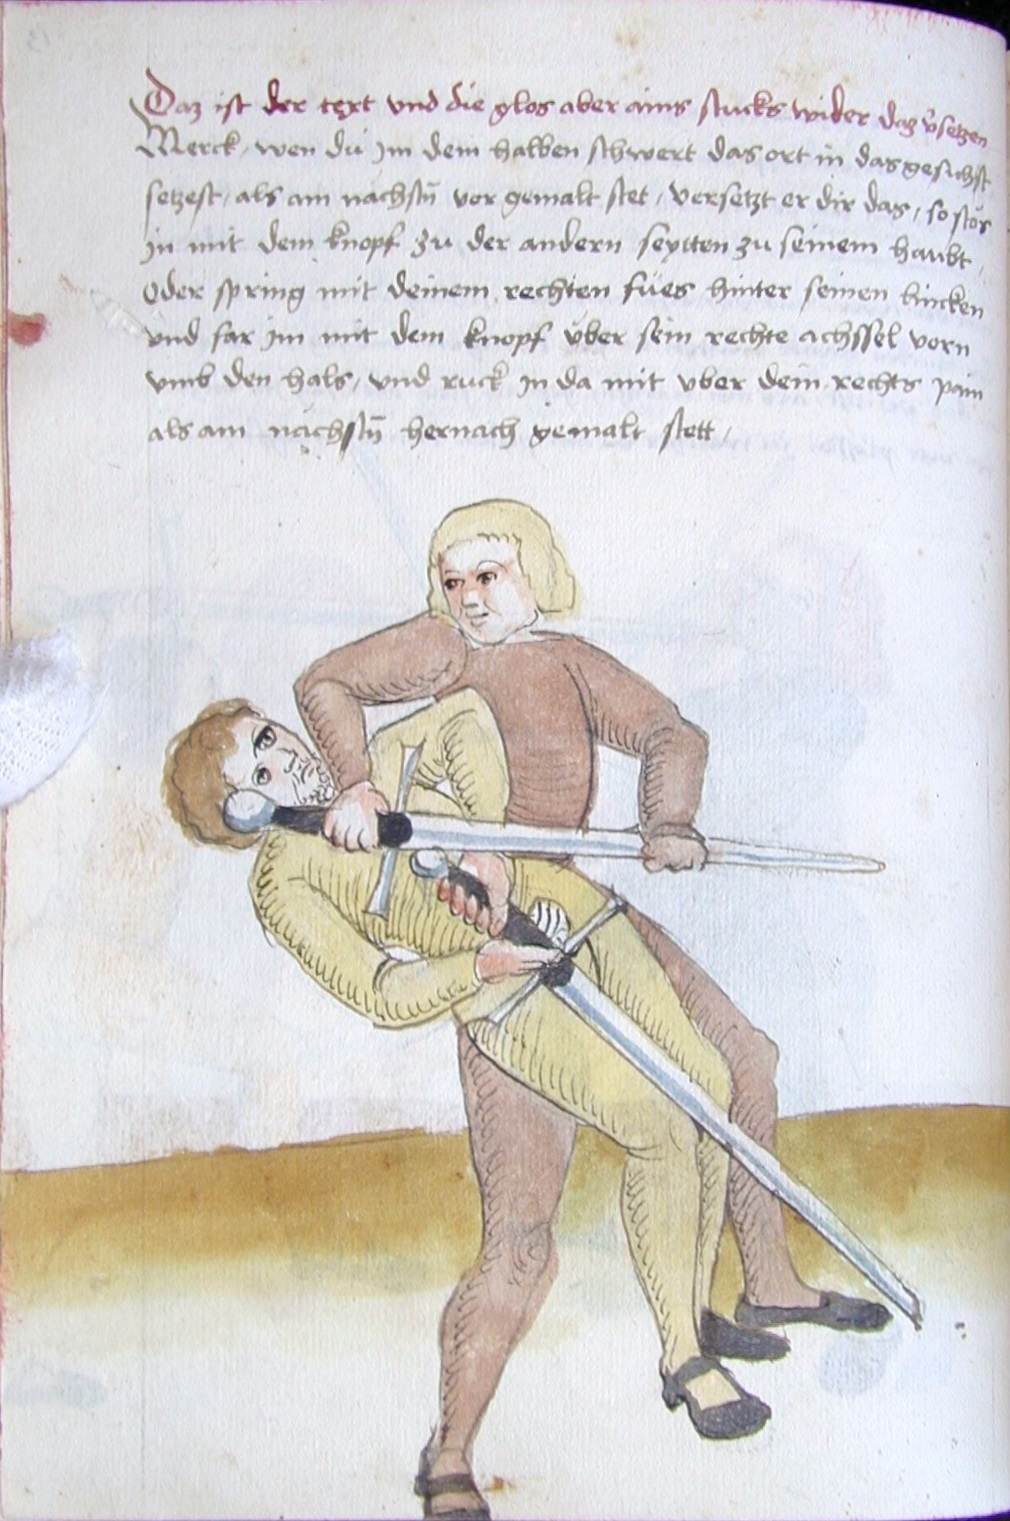 Daz ist der text vnd die glos aber ains stucks wider daz v̊setzen
Merck / wen du jm dem halben schwert das ort in das gesichst
setzest / als am nachstn̄ vor gemalt stet / versetzt er dir das / so stos
jn mit dem knopf zu der andern seytten zu seinem haubt /
Oder spring mit deinem rechten fües hinter seinen lincken
vnd far jm mit dem knopf über sein rechte achssel vorn
vmb den hals / vnd ruck jn da mit vber dein rechts pain
als am nächstn̄ hernach gemalt stett /